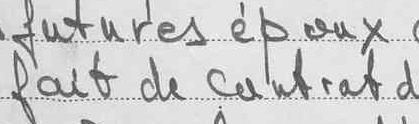 futures époux
fait de contrat d